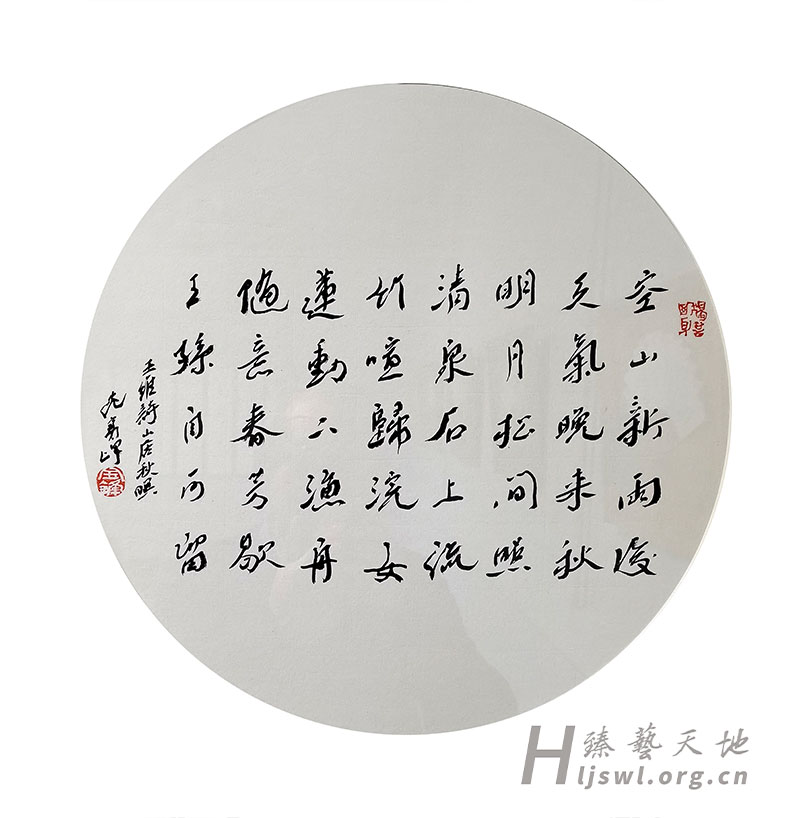 空山新雨後
天氣晚来秋
明月松間照
清泉石上流
竹喧歸浣女
蓮動下漁舟
随意春芳歇
王孫自可留
王維詩山居秋暝
臻藝天地
Hljswl.org.cn